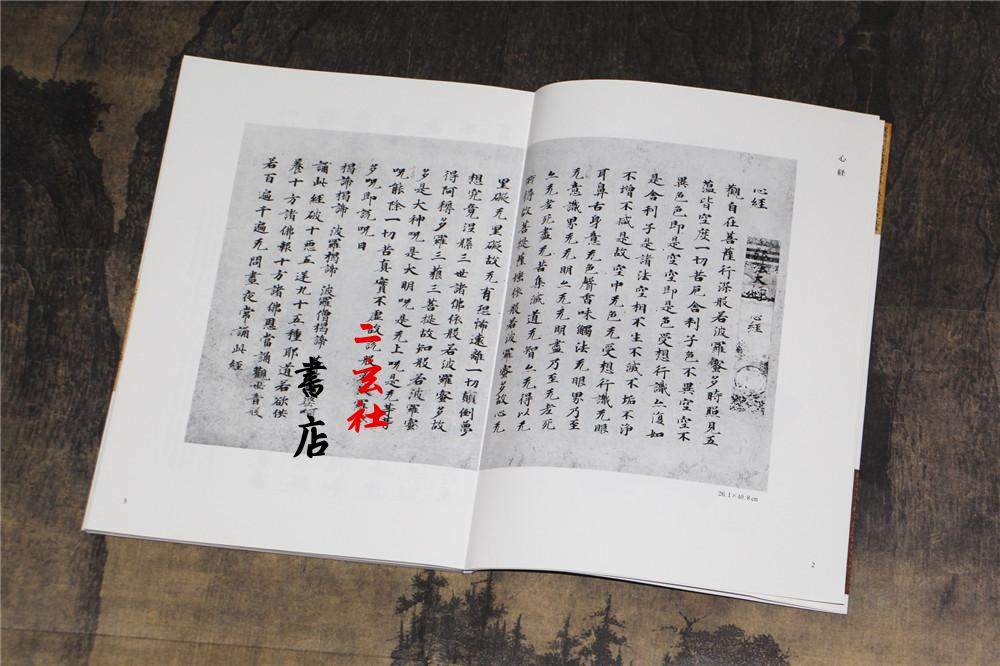 心経
心經
弘法大師 心經
觀自在菩薩行深般若波羅蜜多時照見五
蘊皆空度一切苦厄舍利子色不異空空不
異色色即是空空即是色受想行識亦復如
是舍利子是諸法空相不生不滅不垢不淨
不增不減是故空中无色无受想行識无眼
耳鼻舌身意无色聲香味觸法无眼界乃至
无意識界无无明亦无无明盡乃至无老死
亦无老死盡无苦集滅道无智亦无得以无
所得故菩提薩埵依般若波羅蜜多故心无
罣礙无罣礙故无有恐怖遠離一切顛倒夢
想究竟涅槃三世諸佛依般若波羅蜜多故
得阿耨多羅三藐三菩提故知般若波羅蜜
多是大神呪是大明呪是无上呪是无等等
呪能除一切苦真實不虛故說般
多呪即說呪曰
揭諦揭諦 波羅揭諦 波羅僧揭諦
誦此經破十惡五逆九十五種耶道若欲供
養十方諸佛報十方諸佛恩當誦觀世音般
若百遍千遍无問晝夜常誦此經
26.1×40.8cm
2
3
二玄社
書店